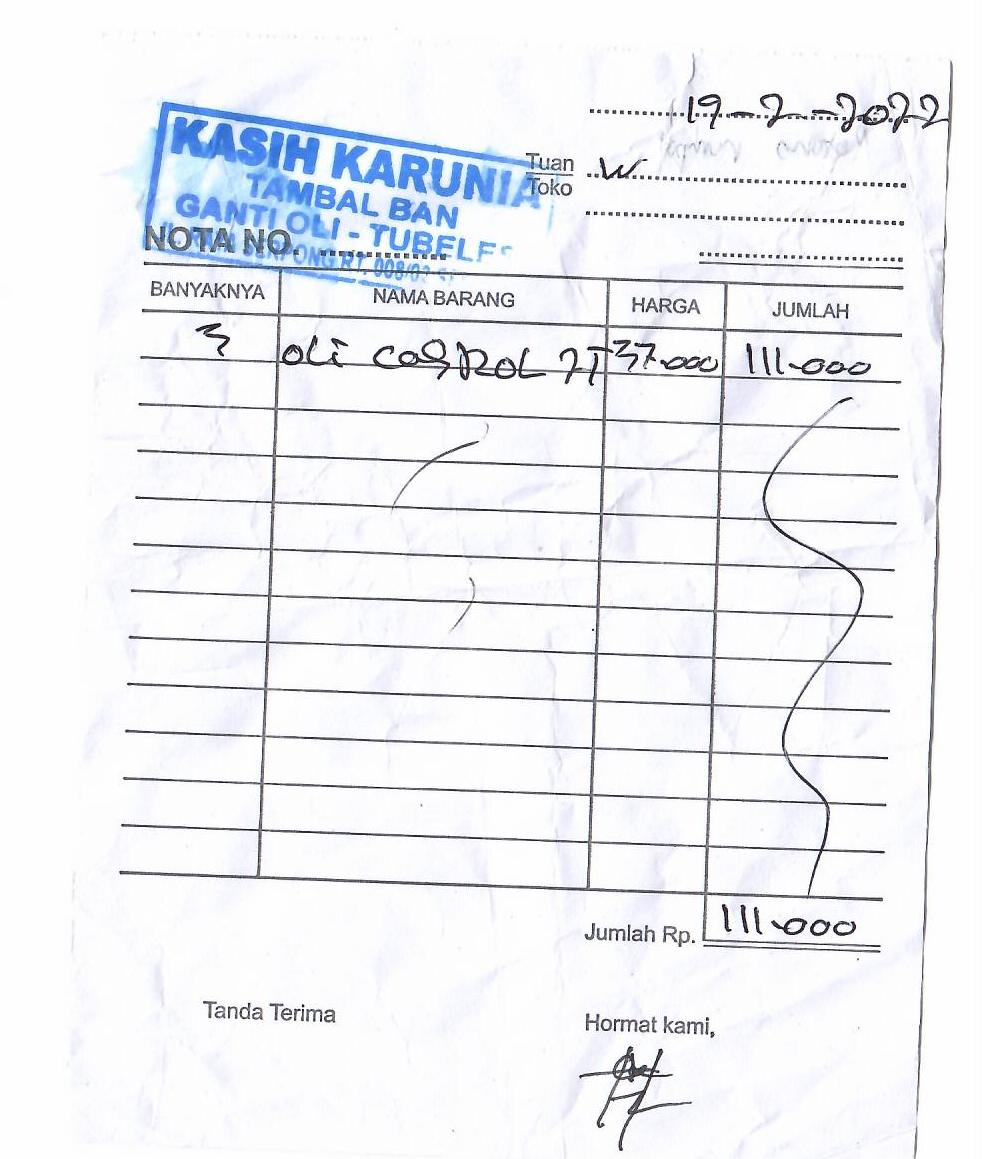 19-2-2022
KASIH KARUNIA
TAMBAL BAN
GANTI OLI - TUBELES
Tuan
Toko
W
NOTA NO.
SERPONG RT. 008/02
BANYAKNYA NAMA BARANG HARGA JUMLAH
3 oli CasTROL 2T 37.000 111.000
Jumlah Rp. 111.000
Tanda Terima
Hormat kami,